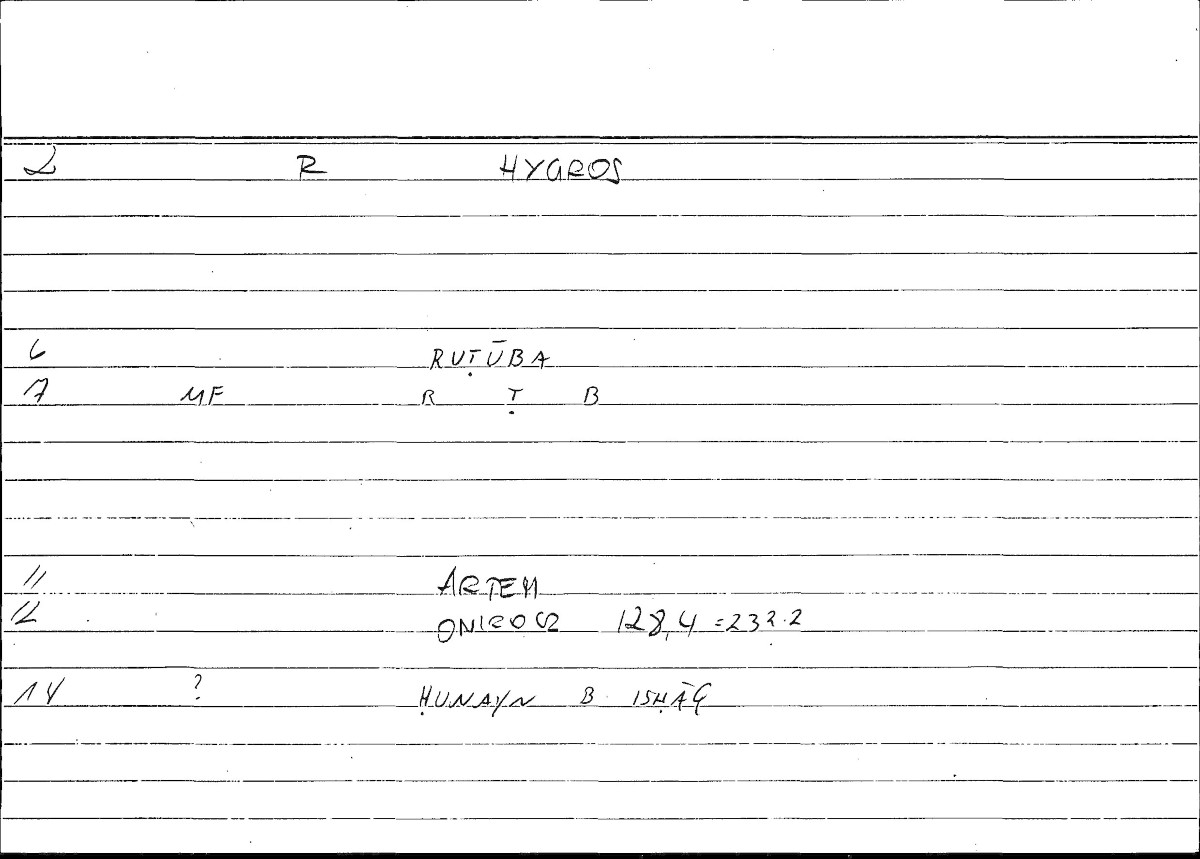 2 R HYGROS
6 RUṬŪBA
7 MF R Ṭ B
11 ARTEM
12 ONIROCR 128,4 = 232.2
14 ? ḤUNAYN B ISḤĀQ